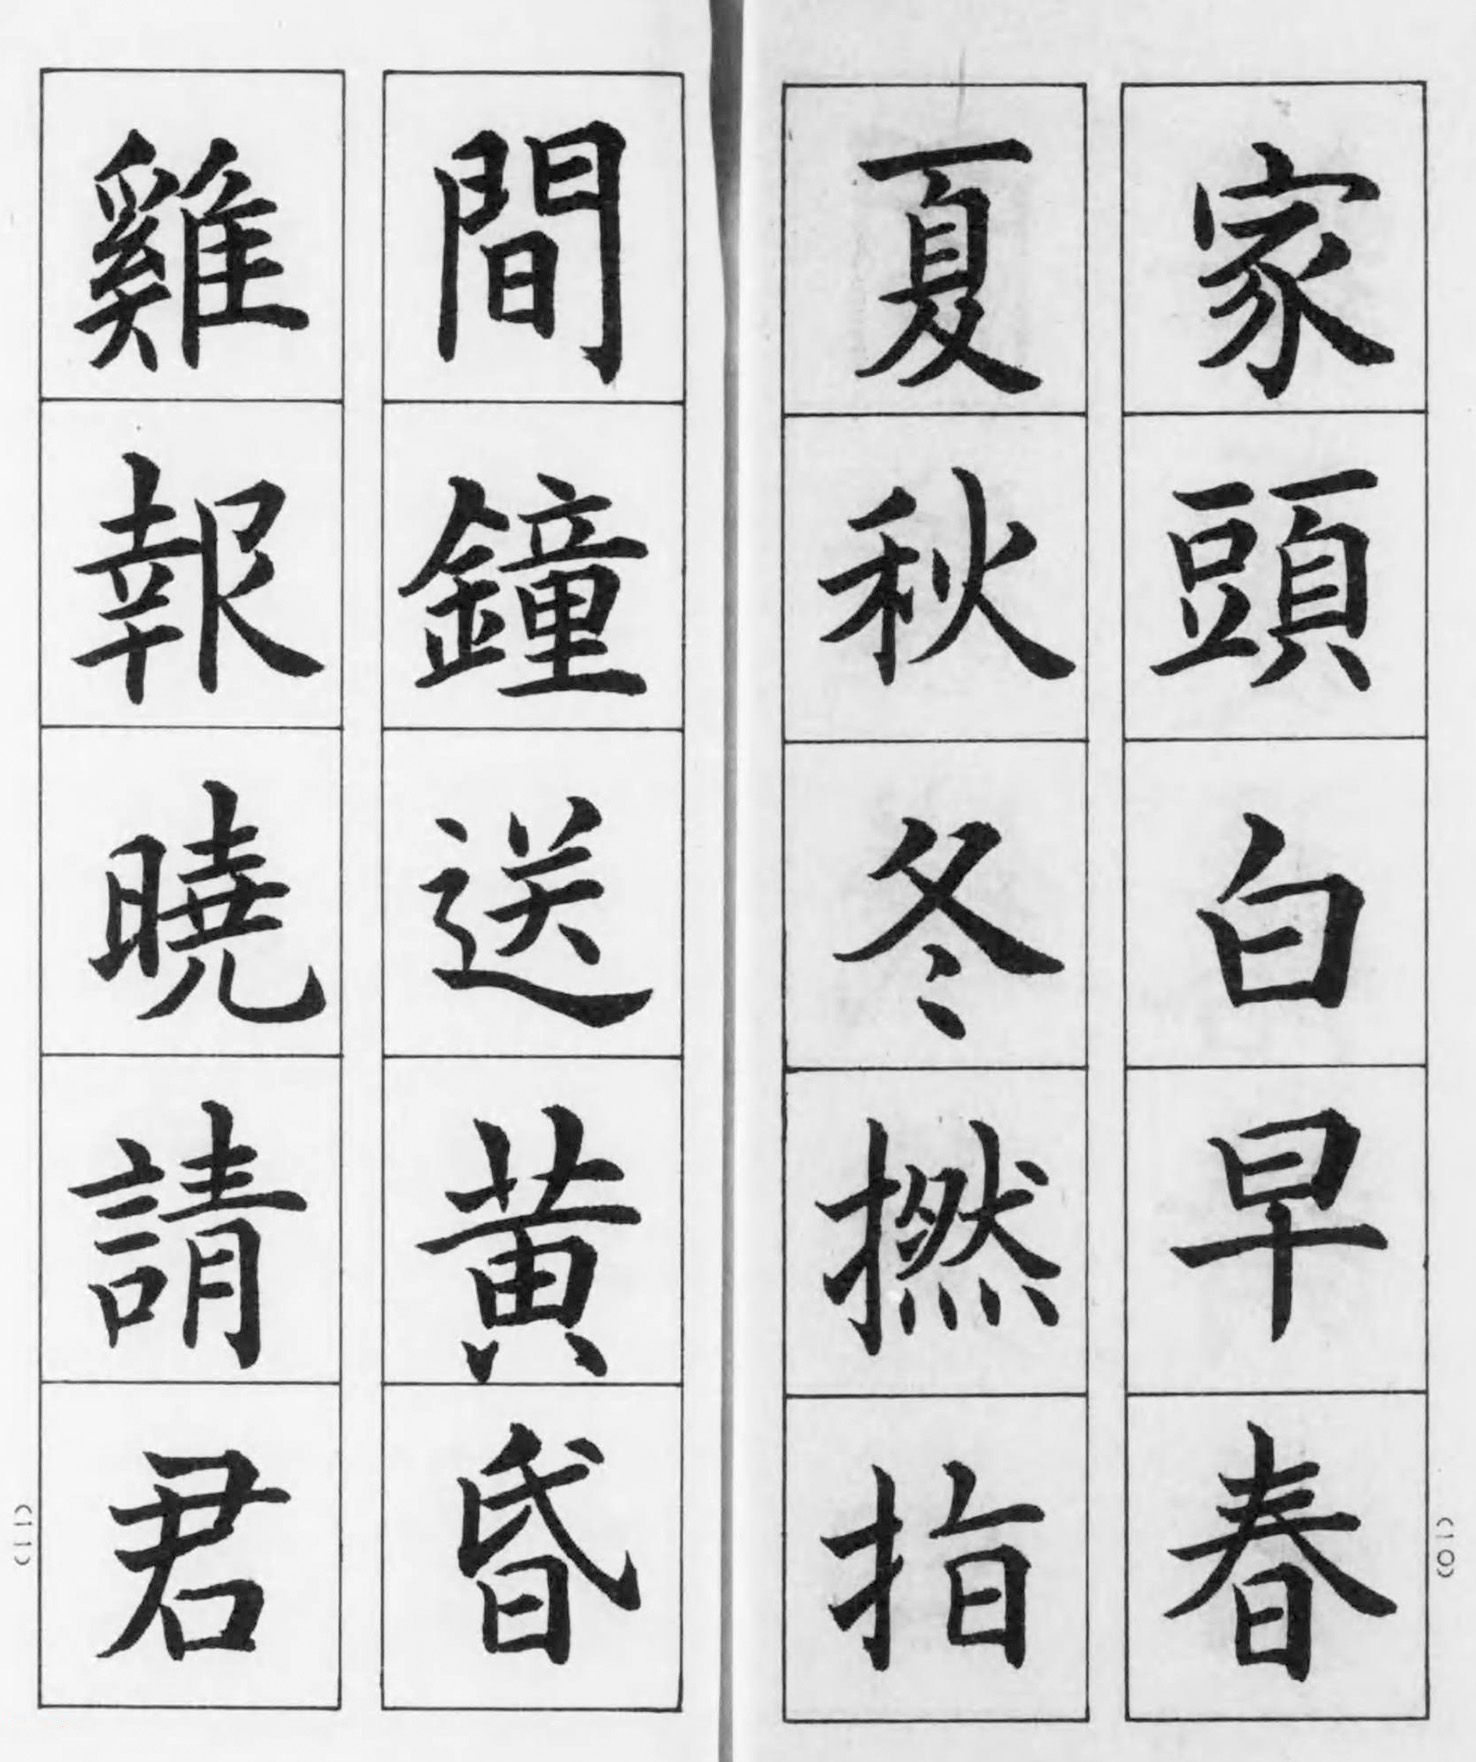 家頭白早春
夏秋冬撚指
(10)
間鐘送黃昏
雞報曉請君
(11)